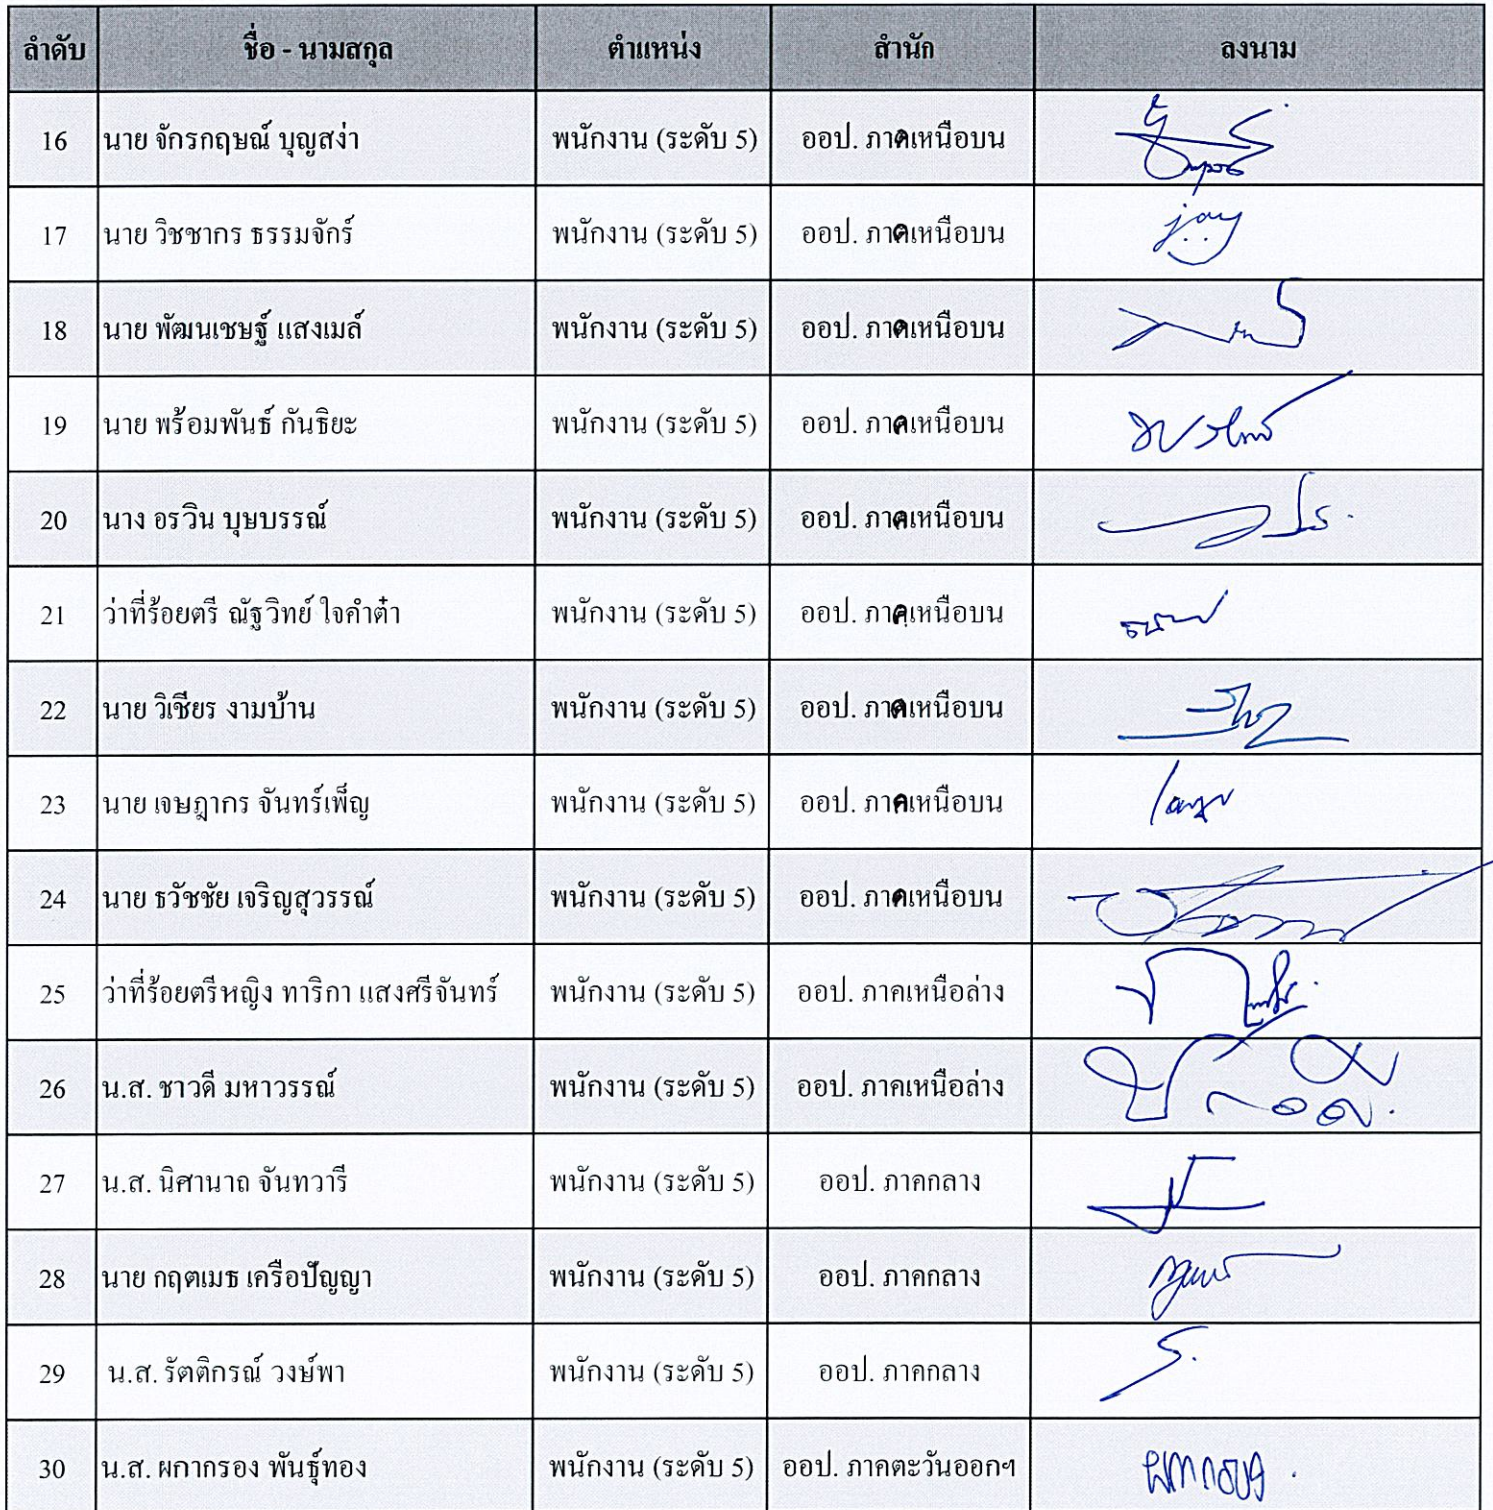 ลำดับ ชื่อ - นามสกุล ตำแหน่ง สำนัก ลงนาม
16 นาย จักรกฤษณ์ บุญสง่า พนักงาน (ระดับ 5) ออป. ภาคเหนือบน
17 นาย วิชชากร ธรรมจักร์ พนักงาน (ระดับ 5) ออป. ภาคเหนือบน joy
18 นาย พัฒนเชษฐ์ แสงเมล์ พนักงาน (ระดับ 5) ออป. ภาคเหนือบน
19 นาย พร้อมพันธ์ กันธิยะ พนักงาน (ระดับ 5) ออป. ภาคเหนือบน
20 นาง อรวิน บุษบรรณ์ พนักงาน (ระดับ 5) ออป. ภาคเหนือบน
21 ว่าที่ร้อยตรี ณัฐวิทย์ ใจคำต๋ำ พนักงาน (ระดับ 5) ออป. ภาคเหนือบน
22 นาย วิเชียร งามบ้าน พนักงาน (ระดับ 5) ออป. ภาคเหนือบน
23 นาย เจษฎากร จันทร์เพ็ญ พนักงาน (ระดับ 5) ออป. ภาคเหนือบน
24 นาย ธวัชชัย เจริญสุวรรณ์ พนักงาน (ระดับ 5) ออป. ภาคเหนือบน
25 ว่าที่ร้อยตรีหญิง ทาริกา แสงศรีจันทร์ พนักงาน (ระดับ 5) ออป. ภาคเหนือล่าง
26 น.ส. ชาวดี มหาวรรณ์ พนักงาน (ระดับ 5) ออป. ภาคเหนือล่าง
27 น.ส. นิศานาถ จันทวารี พนักงาน (ระดับ 5) ออป. ภาคกลาง
28 นาย กฤตเมธ เครือปัญญา พนักงาน (ระดับ 5) ออป. ภาคกลาง
29 น.ส. รัตติกรณ์ วงษ์พา พนักงาน (ระดับ 5) ออป. ภาคกลาง
30 น.ส. ผกากรอง พันธุ์ทอง พนักงาน (ระดับ 5) ออป. ภาคตะวันออกฯ ผกากรอง